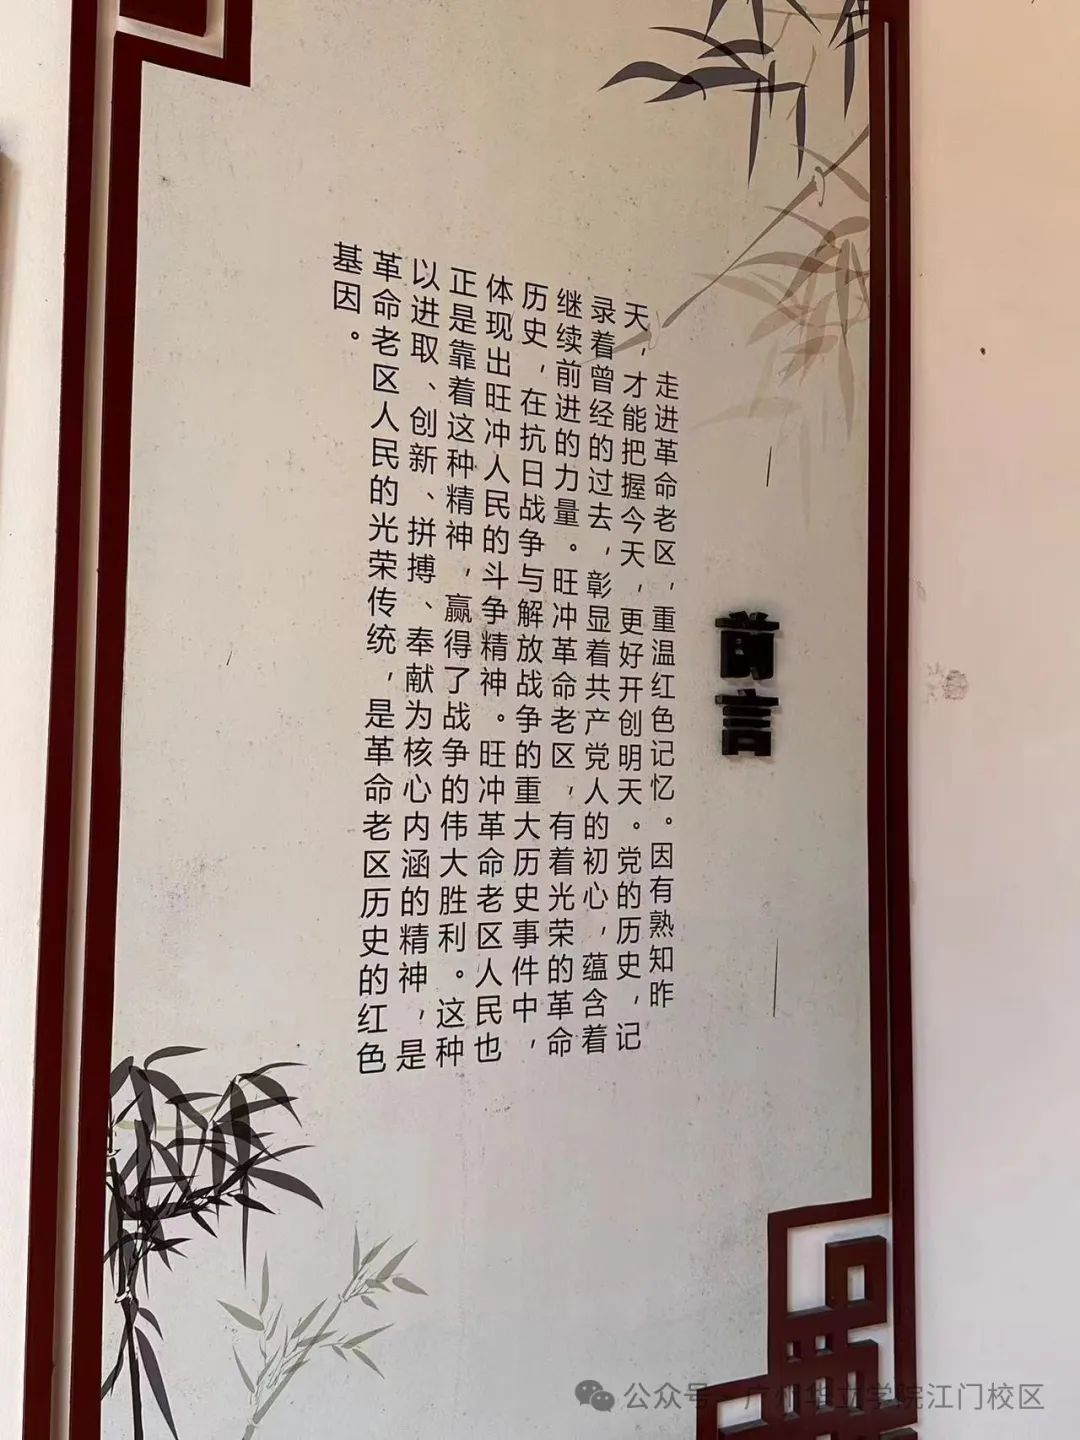 前言
走进革命老区，重温红色记忆。因有熟知昨
天，才能把握今天，更好开创明天。党的历史，记
录着曾经的过去，彰显着共产党人的初心，蕴含着
继续前进的力量。旺冲革命老区，有着光荣的革命
历史，在抗日战争与解放战争的重大历史事件中，
体现出旺冲人民的斗争精神。旺冲革命老区人民也
正是靠着这种精神，赢得了战争的伟大胜利。这种
以进取、创新、拼搏、奉献为核心内涵的精神，是
革命老区人民的光荣传统，是革命老区历史的红色
基因。
公众号·广州华立学院江门校区